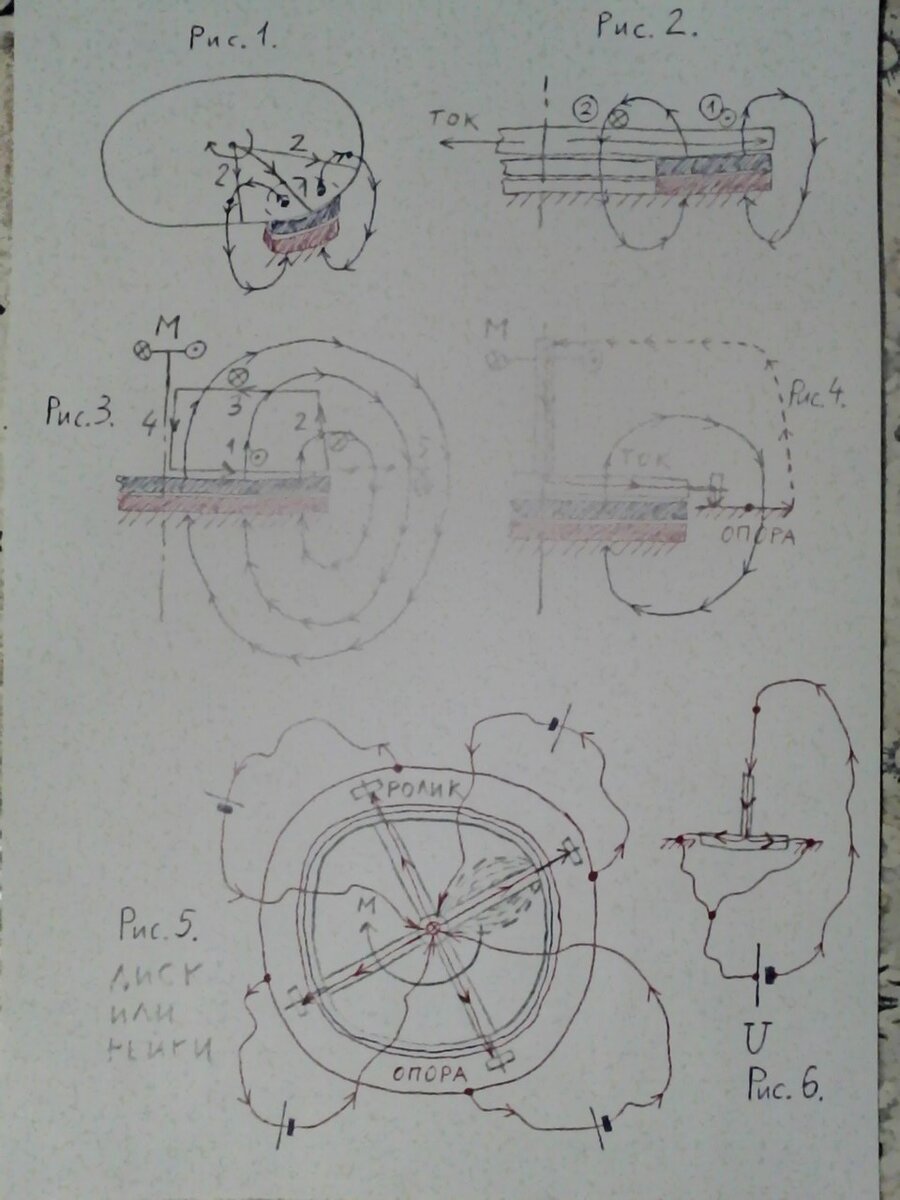 Рис. 1.
Рис. 2.
2
2
1
ТОК
2
1
М
Рис. 3.
3
4
2
1
М
Рис. 4.
ТОК
ОПОРА
РОЛИК
М
Рис. 5.
ДИСК
ИЛИ
ОПОРА
U
Рис. 6.